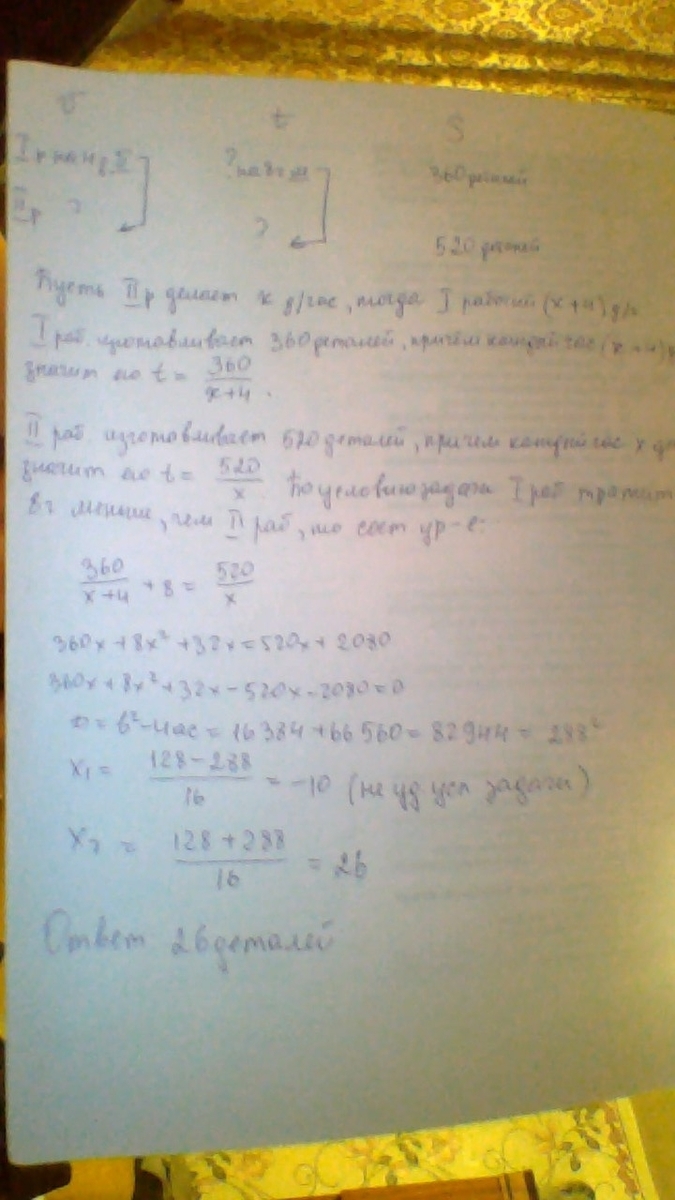 v t S
I р на 4 д II ? на 8 г м 360 деталей
II р ? ? 520 деталей
Пусть II р делает x д/час, тогда I рабочий (x+4) д/ч
I раб. изготавливает 360 деталей, причём каждый час (x+4)
значит его t = 360/(x+4).
II раб. изготавливает 520 деталей, причем каждый час x де
значит его t = 520/x. По условию задачи I раб тратит
8 г меньше, чем II раб, то сост ур-е:
360/(x+4) + 8 = 520/x
360x + 8x² + 32x = 520x + 2080
360x + 8x² + 32x - 520x - 2080 = 0
D = b² - 4ac = 16384 + 66560 = 82944 = 288²
x₁ = (128 - 288)/16 = -10 (не уд усл задачи)
x₂ = (128 + 288)/16 = 26
Ответ 26 деталей